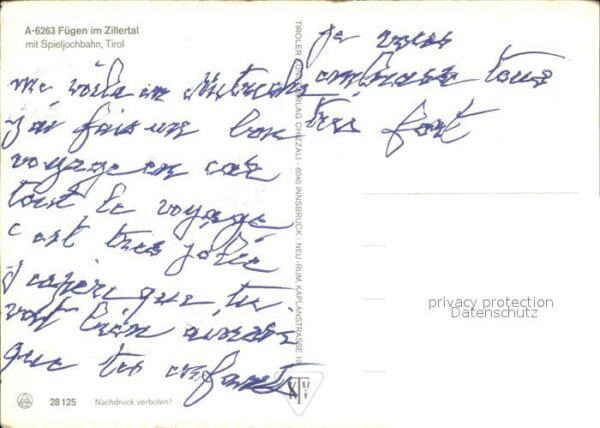 A-6263 Fügen im Zillertal
mit Spieljochbahn, Tirol
me voila en Autriche
j'ai fais un bon
voyage en car
tout le voyage
c'est tres jolie
j'espere que tu
vas bien ainsi
que tes enfants
je vous
embrasse tous
tres fort
TIROLER KUNSTVERLAG CHIZZALI · 6040 INNSBRUCK - NEU-RUM, KAPLANSTRASSE 10
privacy protection
Datenschutz
28 125 Nachdruck verboten!